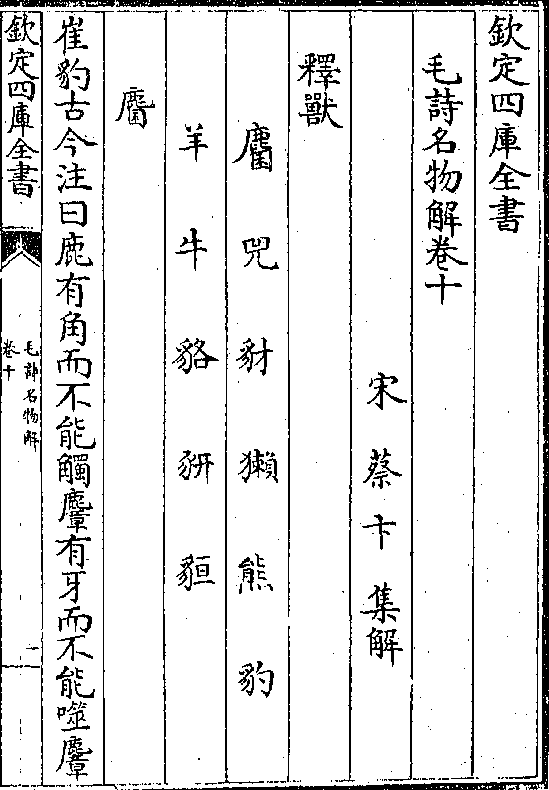 欽定四庫全書
毛詩名物解卷十
宋蔡卞集解
釋獸
麕兕豺獺熊豹
羊牛貉豣貆
麕
崔豹古今注曰鹿有角而不能觸麞有牙而不能噬麞
欽定四庫全書
毛詩名物解
卷十
一